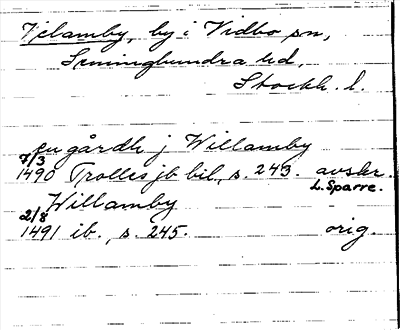 Vjelamby, by i Vidbo sn,
Seminghundra hd,
Stockh. l.
en gårdh j Willamby
7/3
1490 Trolles jb bil, s. 243. avskr.
L. Sparre.
Willamby
2/8
1491 ib., s. 245. orig.